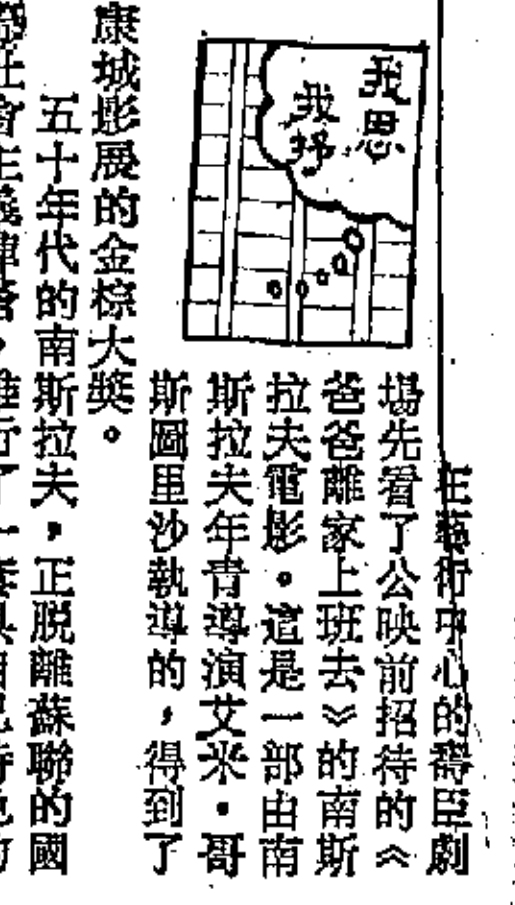 我思
我抒
在藝術中心的壽臣劇
場先看了公映前招待的《
爸爸離家上班去》的南斯
拉夫電影。這是一部由南
斯拉夫年青導演艾米·哥
斯圖里沙執導的，得到了
康城影展的金棕大獎。
五十年代的南斯拉夫，正脫離蘇聯的國